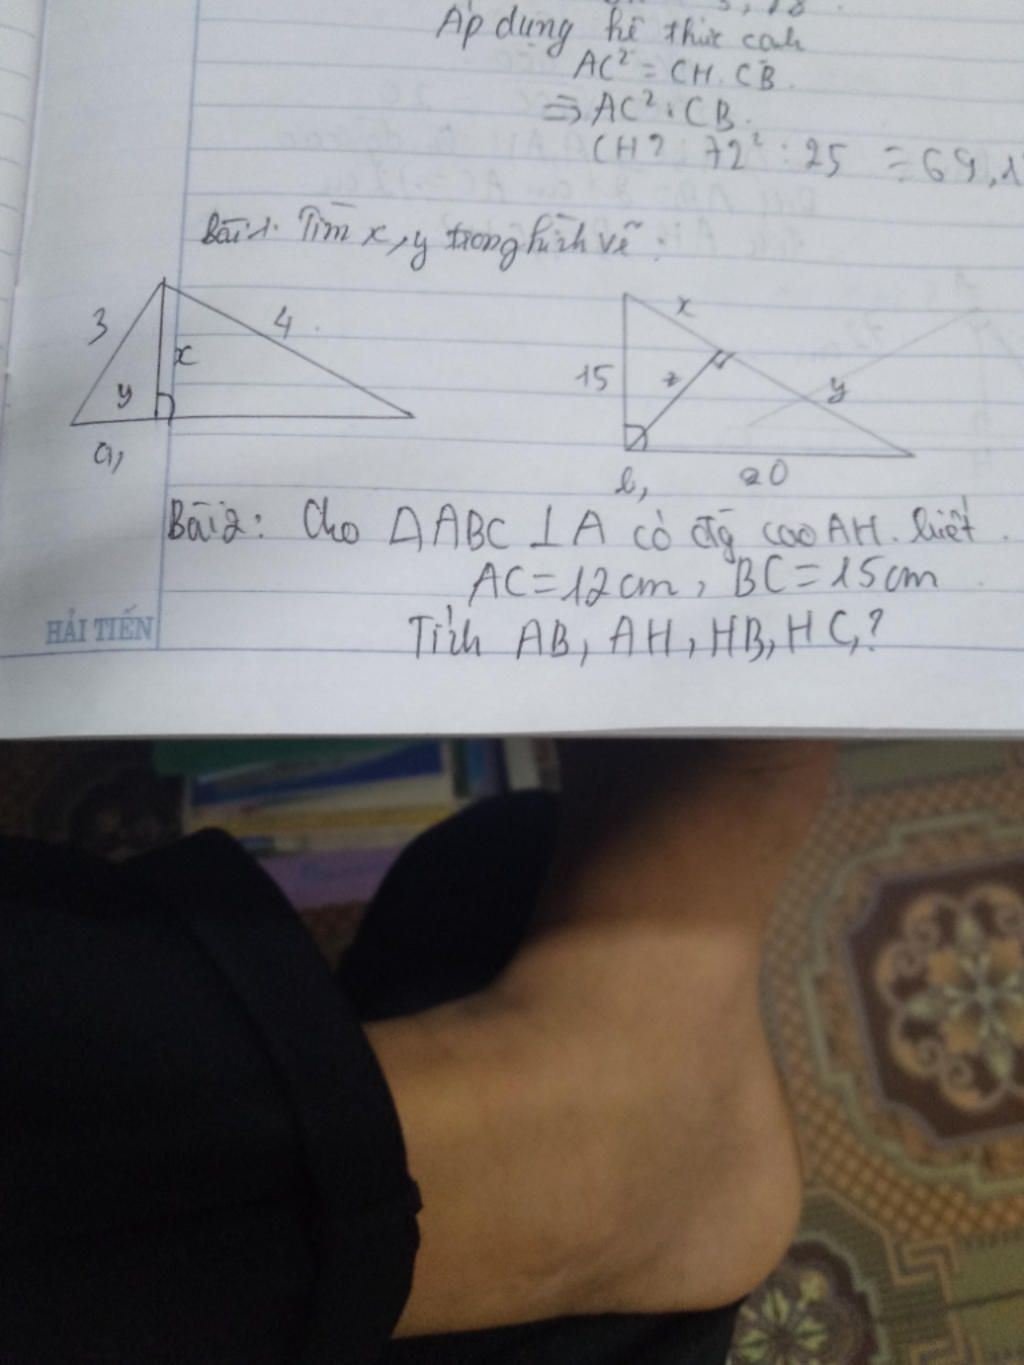 Áp dụng hê thức canh
AC² = CH.CB.
⇒ AC² : CB.
CH? 72² : 25 = 69,1
Bài 1: Tìm x, y trong hình vẽ:
3
4
x
y
a,
x
15
z
y
b,
20
Bài 2: Cho △ABC ⊥ A có đg cao AH. biết
AC = 12cm, BC = 15cm
Tính AB, AH, HB, HC,?
HẢI TIẾN